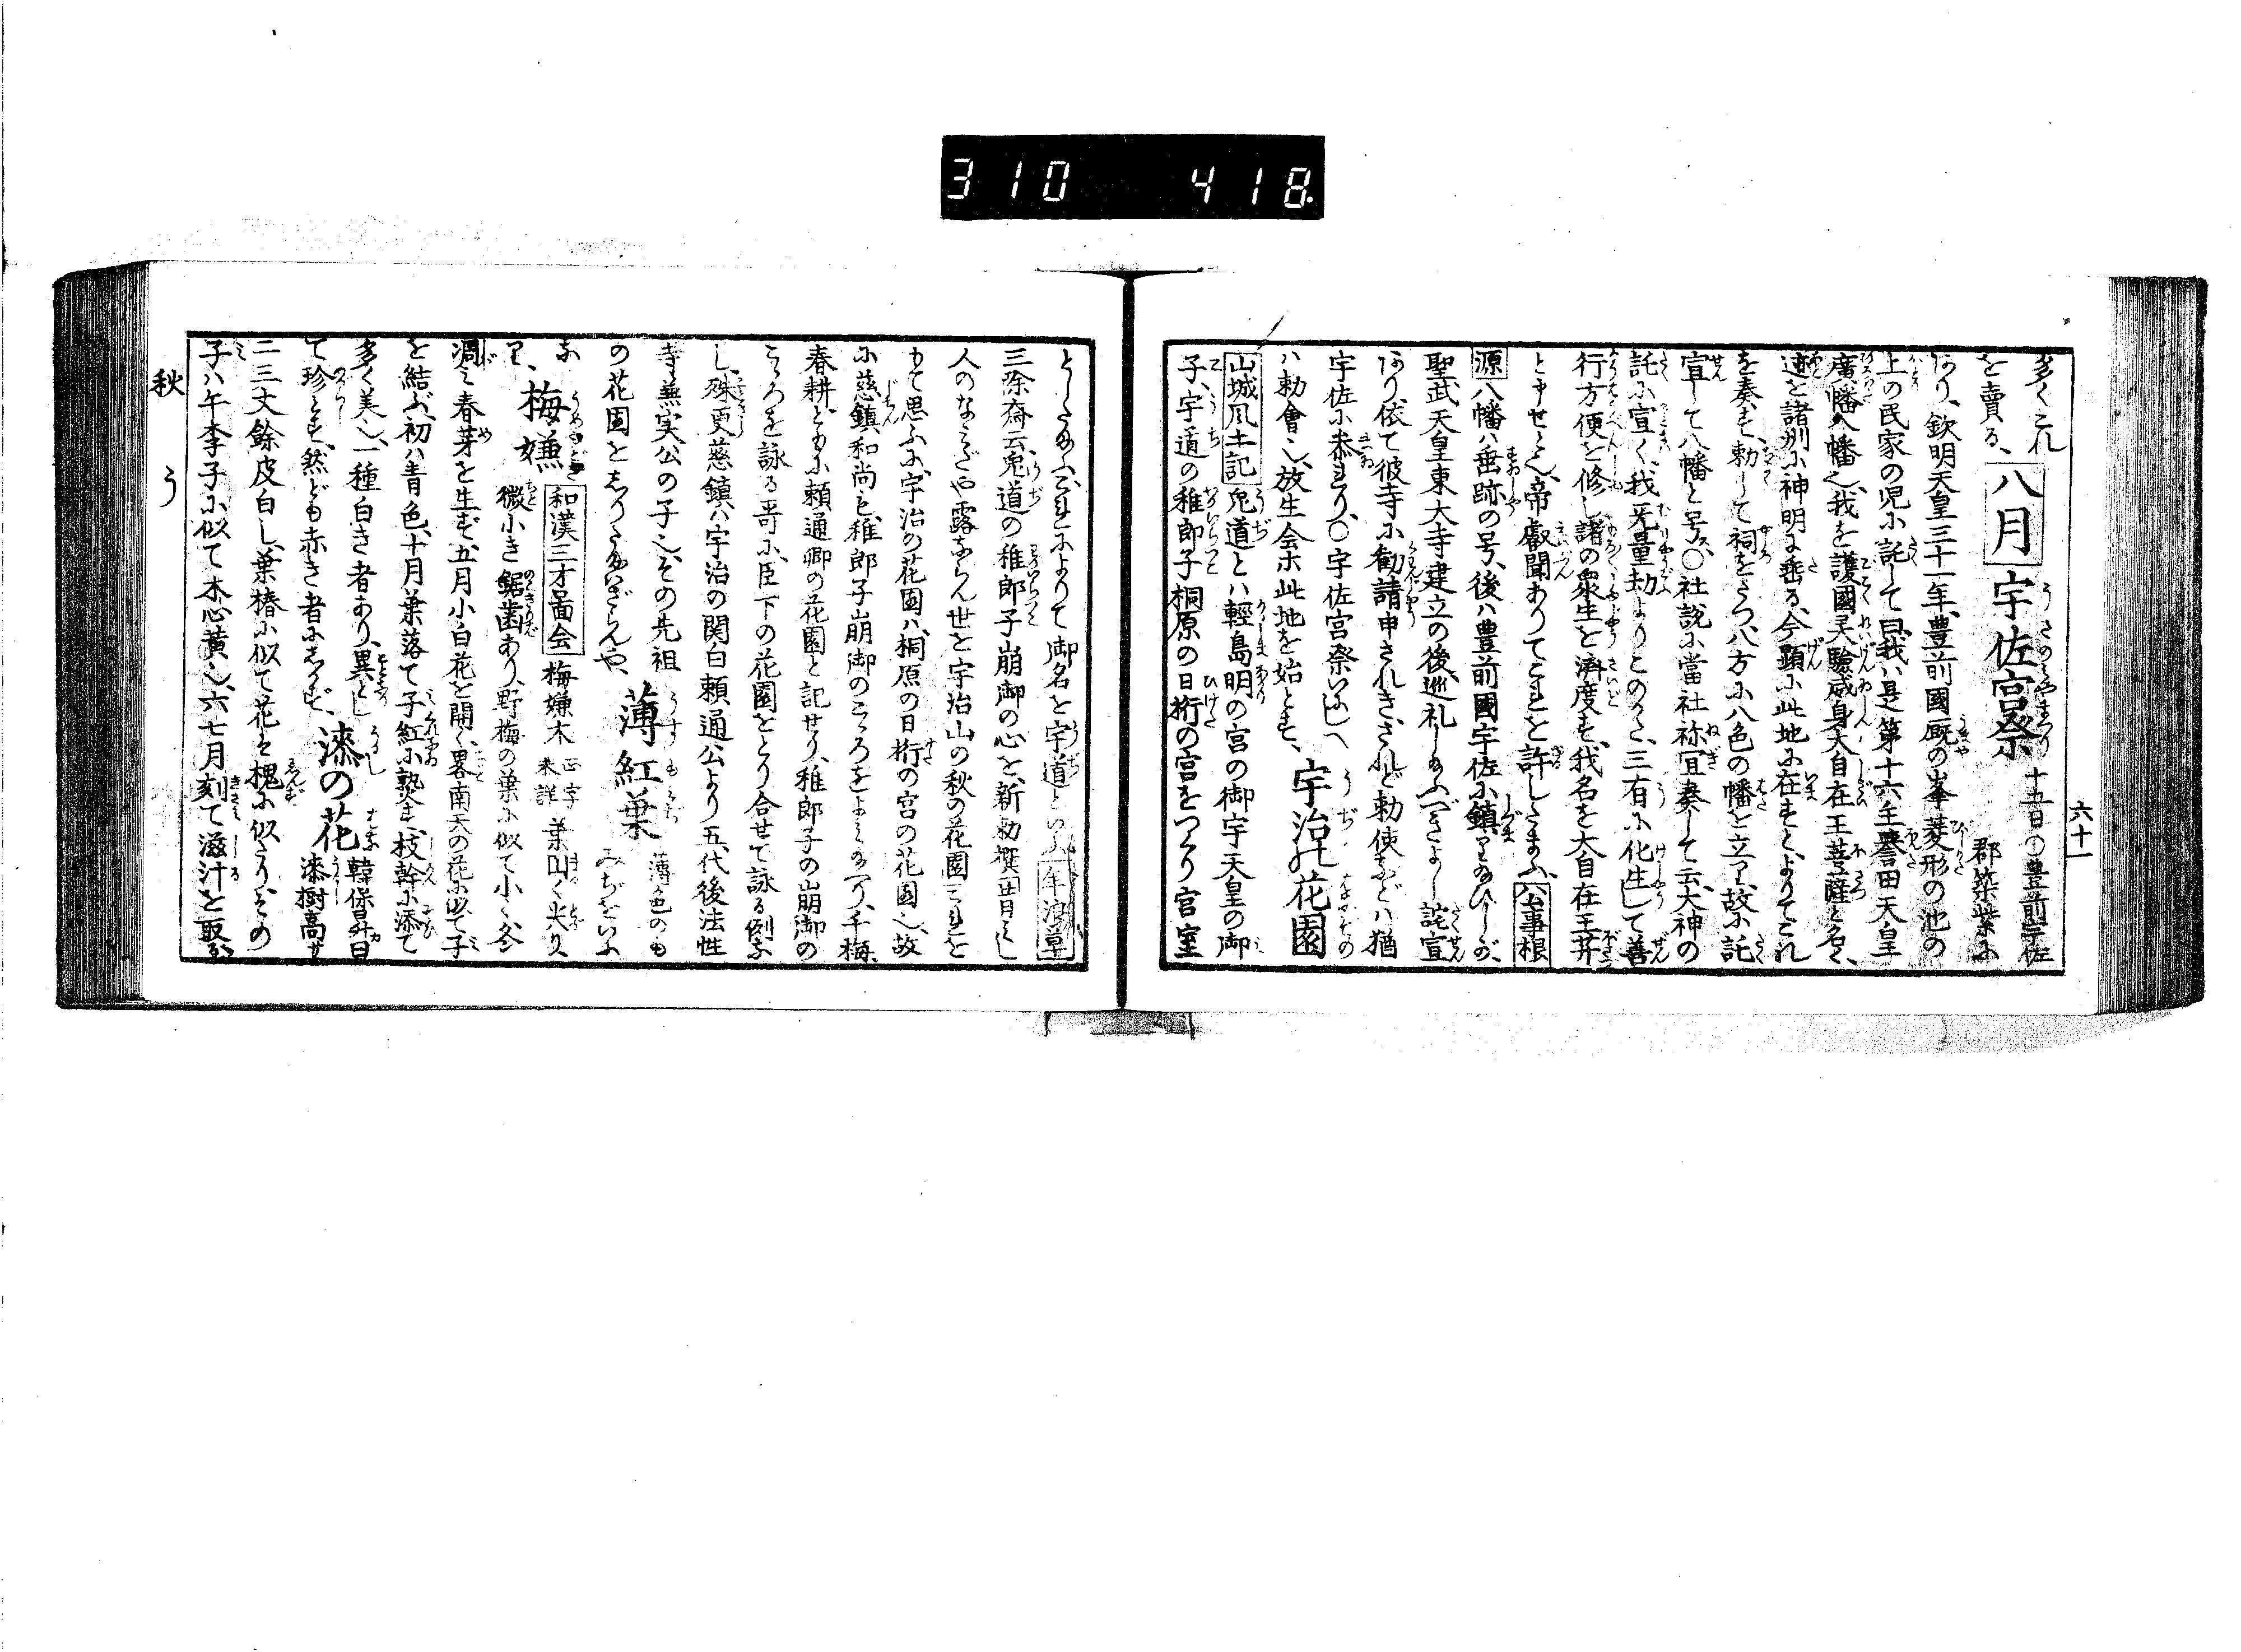 310 418
六十一
多くこれ
を賣る、八月 宇佐宮祭 十五日○豊前宇佐郡築紫に
あり、欽明天皇三十一年、豊前國厩の峯菱形の池の
上の民家の児に託して曰、我は是第十六主譽田天皇
廣幡八幡也、我を護國灵驗威身大自在王菩薩と名く、
迹を諸州に神明に垂る、今顕に此地に在すと、よりてこれ
を奏す、勅して祠をたつ、八方に八色の幡を立つ、故に託
宣して八幡と号ス、○社説に當社祢宜奏して云、大神の
託に宣く、我无量劫よりこのかた、三有に化生して善
行方便を修し、諸の衆生を濟度す、我名を大自在王菩
と申せと也、帝叡聞ありてこれを許したまふ、公事根
源 八幡ハ垂跡の号、後ハ豊前國宇佐に鎮り給ひしが、
聖武天皇東大寺建立の後、巡礼し給ふべきよし託宣
あり、依て彼寺に勧請申されき、されど勅使などハ猶
宇佐に恭まゐり、○宇佐宮祭いにしへ
ハ勅會也、放生会ホ此地を始とす、宇治の花園
山城風土記 兎道とハ輕島明の宮の御宇天皇の御
子、宇道の稚郎子桐原の日桁の宮をつくり宮室
としたまふ、これによりて御名を宇道といふ 年浪草
三除斎云、兎道の稚郎子崩御の心を、新勅撰
人のなみだや露ならん世を宇治山の秋の花園これを
もて思ふに、宇治の花園ハ、桐原の日桁の宮の花園也、故
に慈鎮和尚も、稚郎子崩御のこころをよみ給へり、千梅、
春耕ともに頼通卿の花園と記せり、稚郎子の崩御の
こころを詠る哥に、臣下の花園をとり合せて詠る例な
し、殊更慈鎮ハ宇治の関白頼通公より五代後法性
寺兼実公の子也、その先祖
の花園をしりたまはざらんや、薄紅葉 薄色のもみぢをいふ
な
り、梅嫌 和漢三才圖会 梅嫌木 正字未詳 葉団く尖り
微小き鋸歯あり、野梅の葉に似て小く、冬
凋み春芽を生ず、五月小白花を開く、畧南天の花に似て子
を結ぶ、初ハ青色、十月葉落て子紅に熟す、枝幹に添て
多く美し、一種白き者あり、異とし
て珍とす、然ども赤き者にしかず、漆の花 韓保昇曰 漆樹高サ
二三丈餘皮白し、葉椿に似て花を槐に似たり、その
子ハ午李子に似て木心黄し、六七月刻て滋汁を取ル
秋
う